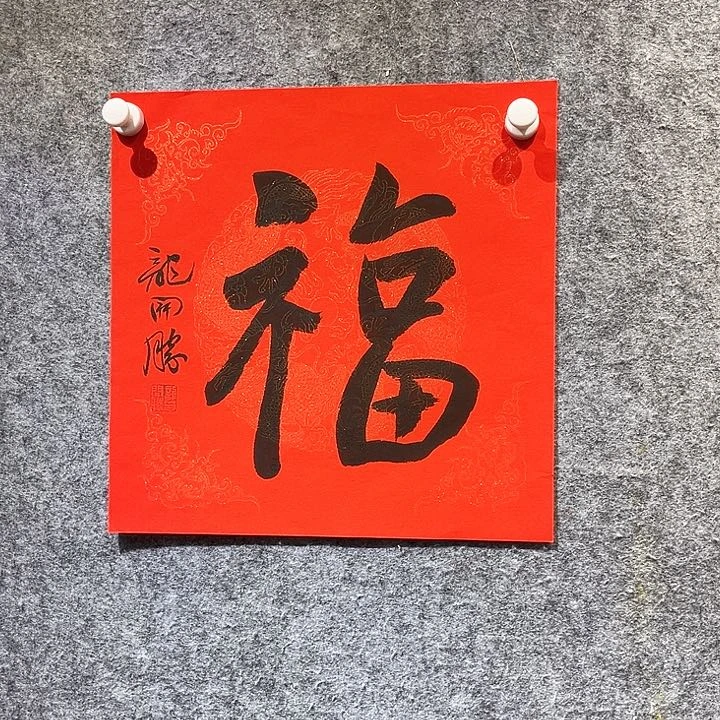 福
龍開勝